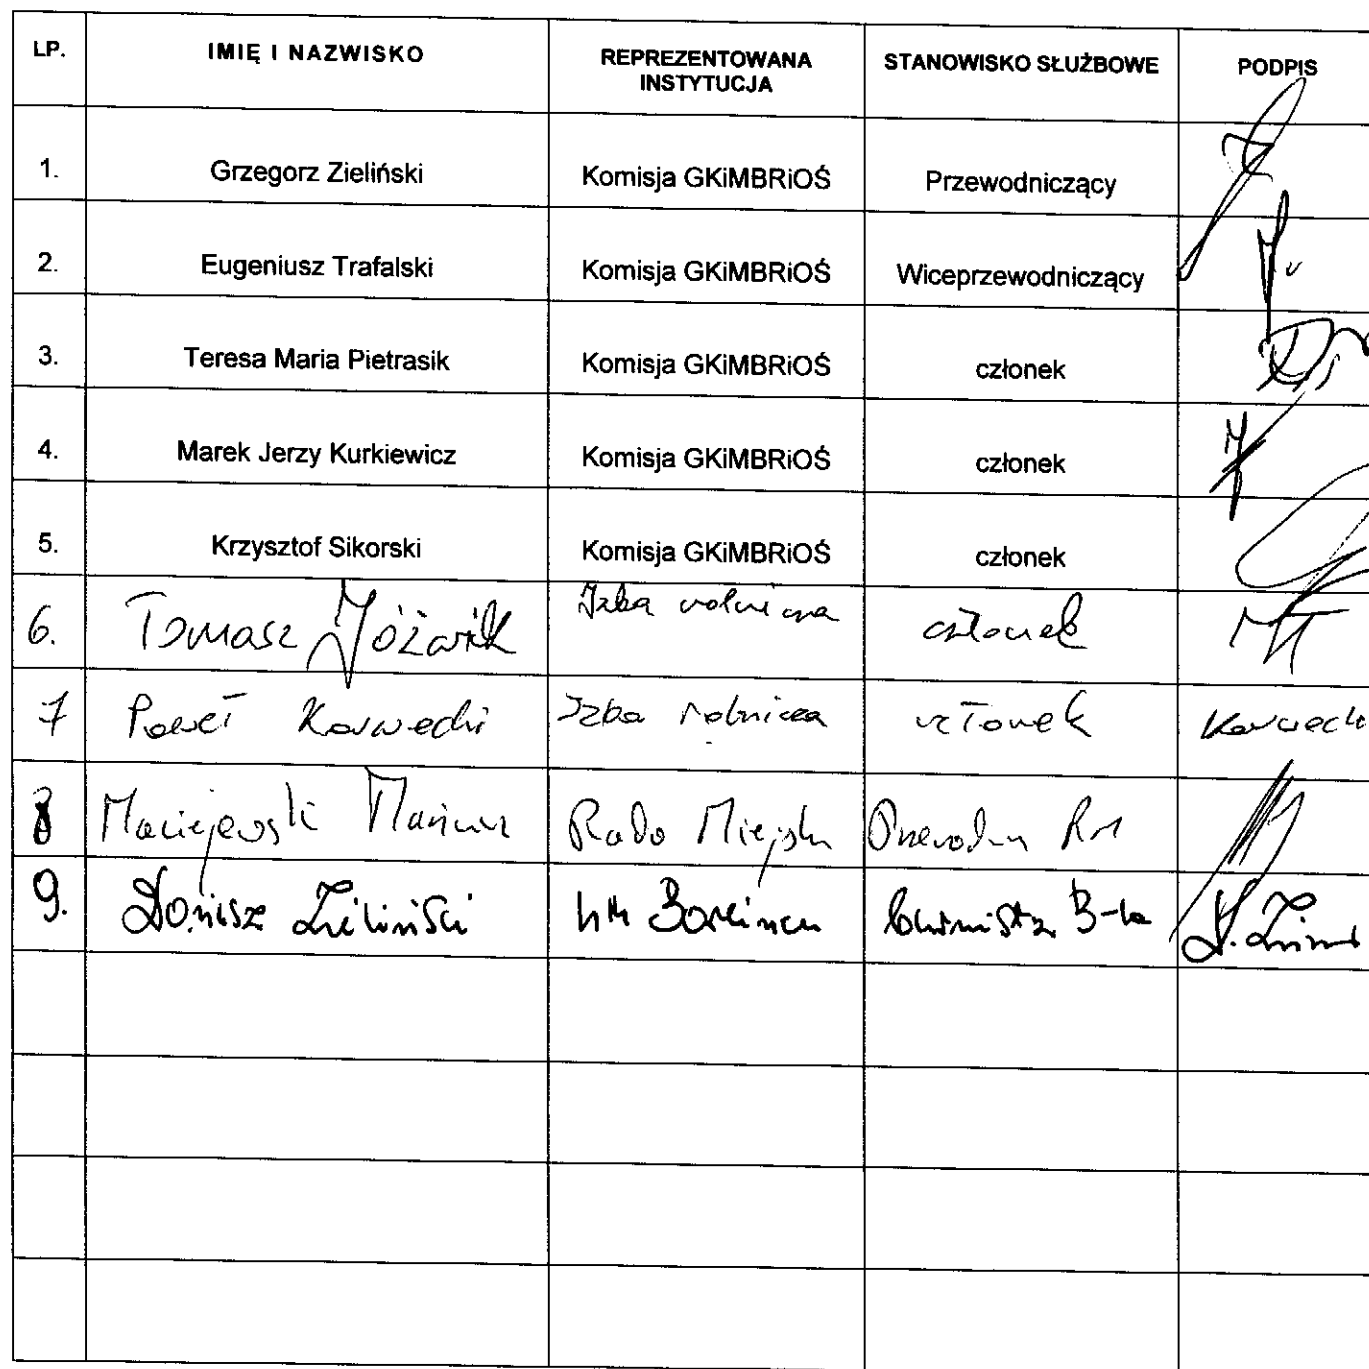 LP. IMIĘ I NAZWISKO REPREZENTOWANA INSTYTUCJA STANOWISKO SŁUŻBOWE PODPIS
1. Grzegorz Zieliński Komisja GKiMBRiOŚ Przewodniczący
2. Eugeniusz Trafalski Komisja GKiMBRiOŚ Wiceprzewodniczący
3. Teresa Maria Pietrasik Komisja GKiMBRiOŚ członek
4. Marek Jerzy Kurkiewicz Komisja GKiMBRiOŚ członek
5. Krzysztof Sikorski Komisja GKiMBRiOŚ członek
6. Tomasz Jóźwik Izba rolnicza członek
7 Paweł Karwecki Izba rolnicza członek Karwecki
8 Maciejewski Mariusz Rada Miejska RM
9. Zieliński UM Barcinie Burmistrz B-la